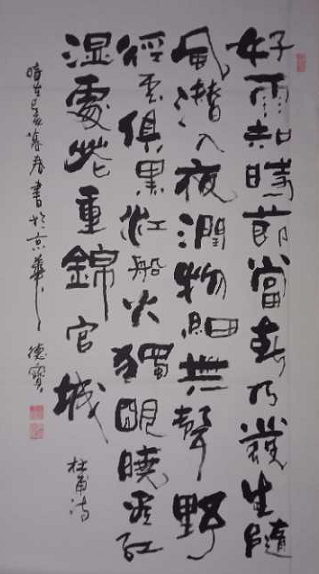 好雨知時節當春乃發生隨
風潛入夜潤物細無聲野
徑雲俱黑江船火獨明曉看紅
湿處花重錦官城 杜甫诗
時在己亥暮春書於京華 德寶